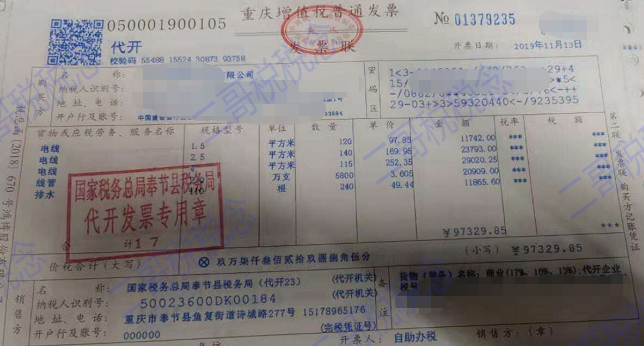 重庆增值税普通发票
050001900105
代开
№ 01379235
发票联
校验码 55488 15524 30873 93758
开票日期: 2019年11月13日
名 称: 限公司
纳税人识别号:
地 址、电 话:
开户行及账号:
密码区
29-03+>3>59320440</9235395
货物或应税劳务、服务名称 规格型号 单位 数量 单价 金额 税率 税额
电线 1.5 平方米 120 97.85 11742.00 *** ***
电线 2.5 平方米 140 169.95 23793.00 *** ***
电线 平方米 115 252.35 29020.25 *** ***
线管 万支 5800 3.605 20909.00 *** ***
排水 根 240 49.44 11865.60 *** ***
国家税务总局奉节县税务局
代开发票专用章
17
合 计 ¥97329.85 ***
价税合计(大写) ⊗ 玖万柒仟叁佰贰拾玖圆捌角伍分 (小写) ¥97329.85
销售方
名 称: 国家税务总局奉节县税务局(代开23) (代开机关)
纳税人识别号: 50023600DK00184 (代开机关)
地 址、电 话: 重庆市奉节县鱼复街道诗城路277号 15178965176
开户行及账号: 000000 (完税凭证号)
备注
税号
开票人: 自助办税 销售方:(章)
第二联 购买方记账凭证
二哥税税念